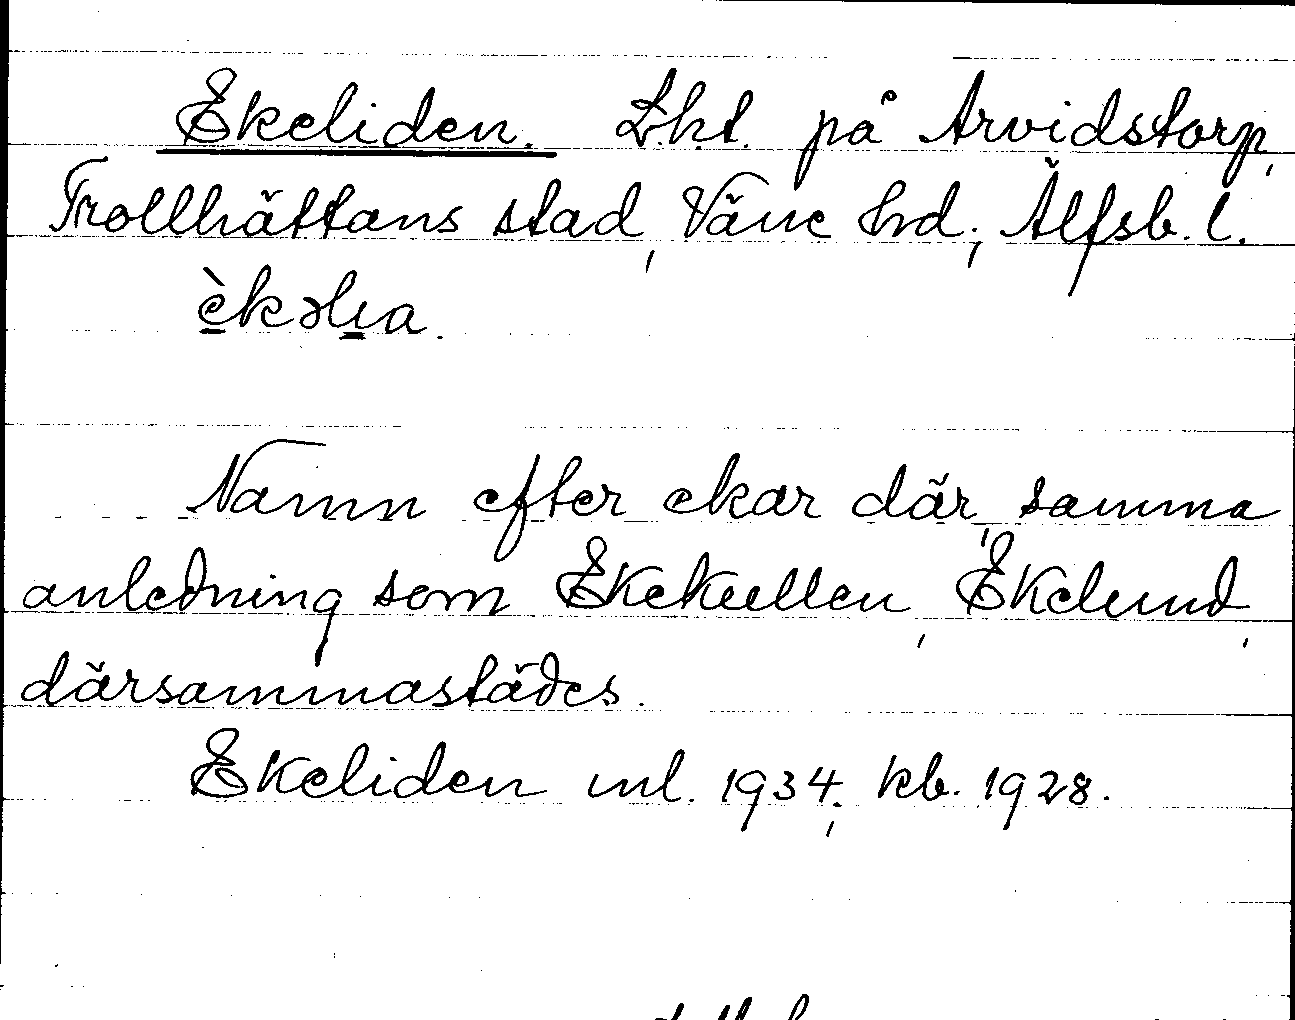 Ekeliden. Lht. på Arvidstorp,
Trollhättans stad, Väne hd, Älfsb. l.
èkəlıa.
Namn efter ekar där, samma
anledning som Ekekullen, Ekelund,
därsammastädes.
Ekeliden ml. 1934; kb. 1928.